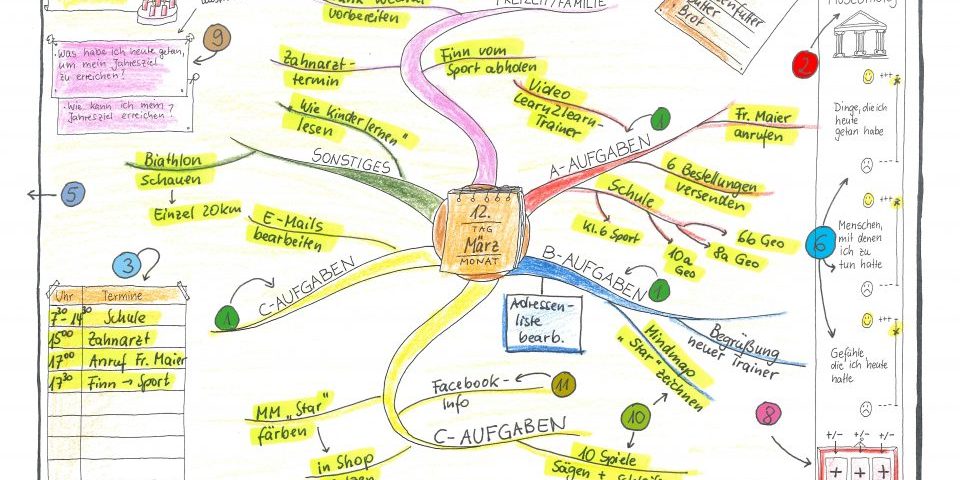 vorbereiten
FREIZEIT/FAMILIE
Brot
2
9
Was habe ich heute getan,
um mein Jahresziel
zu erreichen?
Wie kann ich mein
Jahresziel erreichen?
Zahnarzt-
termin
Finn vom
Sport abholen
Video
Learn2learn-
Trainer
1
Fr. Maier
anrufen
A-AUFGABEN
6 Bestellungen
versenden
Schule
Kl. 6 Sport
10a
Geo
8a Geo
6b Geo
"Wie Kinder lernen"
lesen
SONSTIGES
Biathlon
schauen
Einzel 20km
5
E-Mails
bearbeiten
12.
TAG
März
MONAT
C-AUFGABEN
1
3
Uhr Termine
7³⁰- 14³⁰ Schule
15⁰⁰ Zahnarzt
17⁰⁰ Anruf Fr. Maier
17³⁰ Finn → Sport
B-AUFGABEN
1
Adressen-
liste
bearb.
Mindmap
"Star" zeichnen
Begrüßung
neuer Trainer
Facebook-
Info
11
10
8
MM „Star"
färben
in Shop
C-AUFGABEN
10 Spiele
Sägen +
+++
Dinge, die ich
heute
getan habe
---
+++
6
Menschen,
mit denen
ich zu
tun hatte
---
+++
Gefühle,
die ich heute
hatte
---
+/- +/- +/-
+ + +